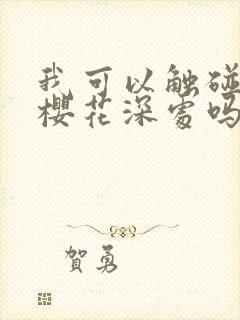 我可以触碰
樱花深处吗
賀勇